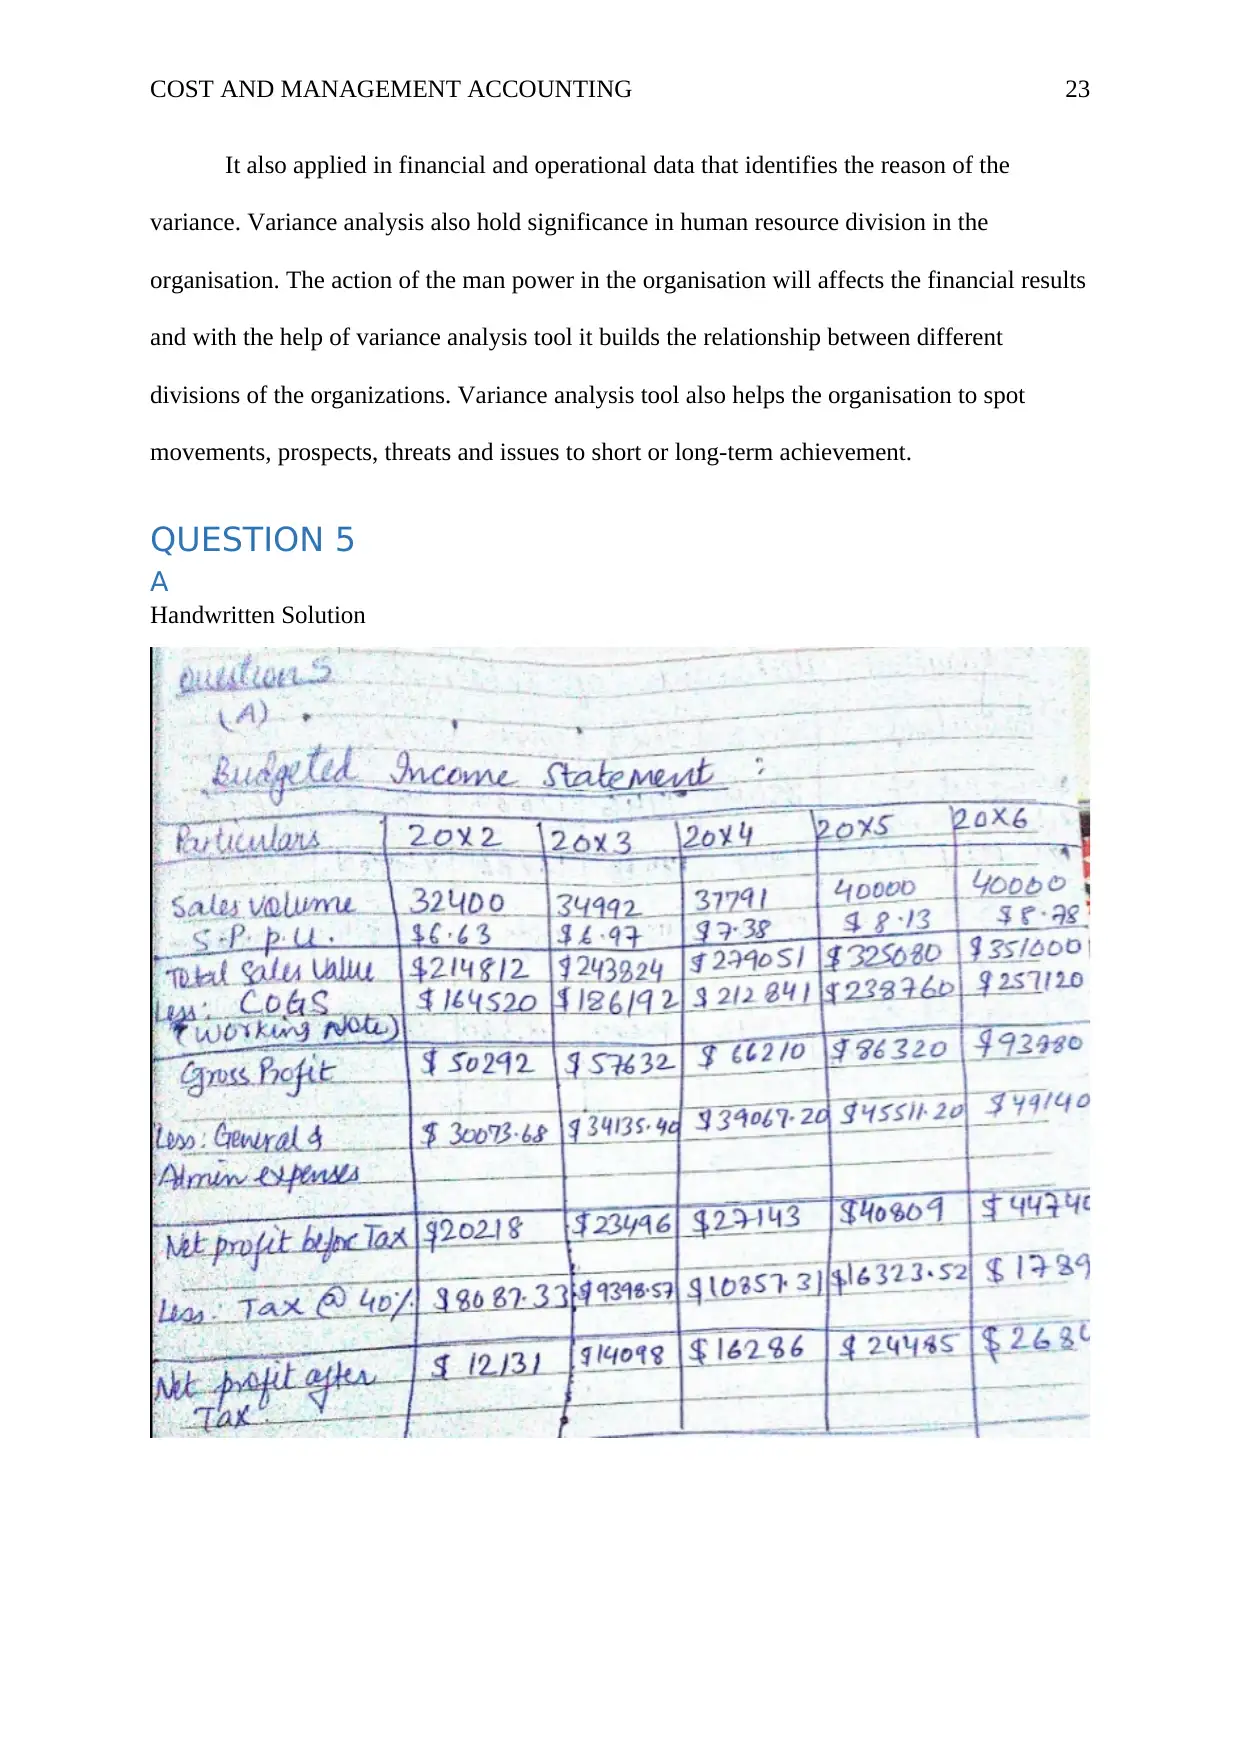 COST AND MANAGEMENT ACCOUNTING 23
It also applied in financial and operational data that identifies the reason of the
variance. Variance analysis also hold significance in human resource division in the
organisation. The action of the man power in the organisation will affects the financial results
and with the help of variance analysis tool it builds the relationship between different
divisions of the organizations. Variance analysis tool also helps the organisation to spot
movements, prospects, threats and issues to short or long-term achievement.
QUESTION 5
A
Handwritten Solution
Question 5
(A)
Budgeted Income Statement :
Particulars 20X2 20X3 20X4 20X5 20X6
Sales volume 32400 34992 37791 40000 40000
S.P. p.u. $6.63 $6.97 $7.38 $8.13 $8.78
Total Sales Value $214812 $243824 $279051 $325080 $351000
Less: COGS $164520 $186192 $212841 $238760 $257120
(Working Note)
Gross Profit $50292 $57632 $66210 $86320 $93880
Less: General & $30073.68 $34135.40 $39067.20 $45511.20 $49140
Admin expenses
Net profit before Tax $20218 $23496 $27143 $40809 $4474
Less: Tax @ 40% $8087.33 $9398.57 $10857.31 $16323.52 $1789
Net profit after $12131 $14098 $16286 $24485 $268
Tax